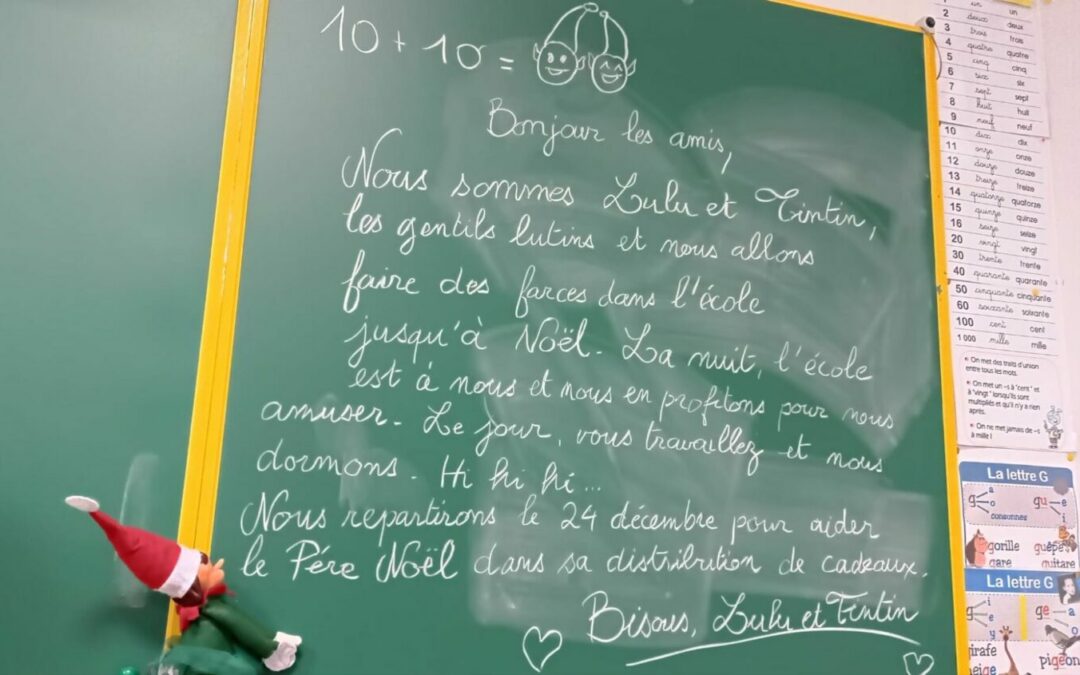 10 + 10 =
Bonjour les amis,
Nous sommes Lulu et Tintin,
les gentils lutins et nous allons
faire des farces dans l'école
jusqu'à Noël. La nuit, l'école
est à nous et nous en profitons pour nous
amuser. Le jour, vous travaillez et nous
dormons. Hi hi hi...
Nous repartirons le 24 décembre pour aider
le Père Noël dans sa distribution de cadeaux.
Bisous, Lulu et Tintin
un un
2 deux deux
3 trois trois
4 quatre quatre
5 cinq cinq
6 six six
7 sept sept
8 huit huit
9 neuf neuf
10 dix dix
11 onze onze
12 douze douze
13 treize treize
14 quatorze quatorze
15 quinze quinze
16 seize seize
20 vingt vingt
30 trente trente
40 quarante quarante
50 cinquante cinquante
60 soixante soixante
100 cent cent
1 000 mille mille
On met des traits d'union
entre tous les mots.
On met un -s à "cent" et
à "vingt" lorsqu'ils sont
multipliés et qu'il n'y a rien
après.
On ne met jamais de -s
à mille !
La lettre G
g a o
consonnes
gu e
gorille guêpe
gare guitare
La lettre G
g i e y
ge a o
girafe
neige pigeon